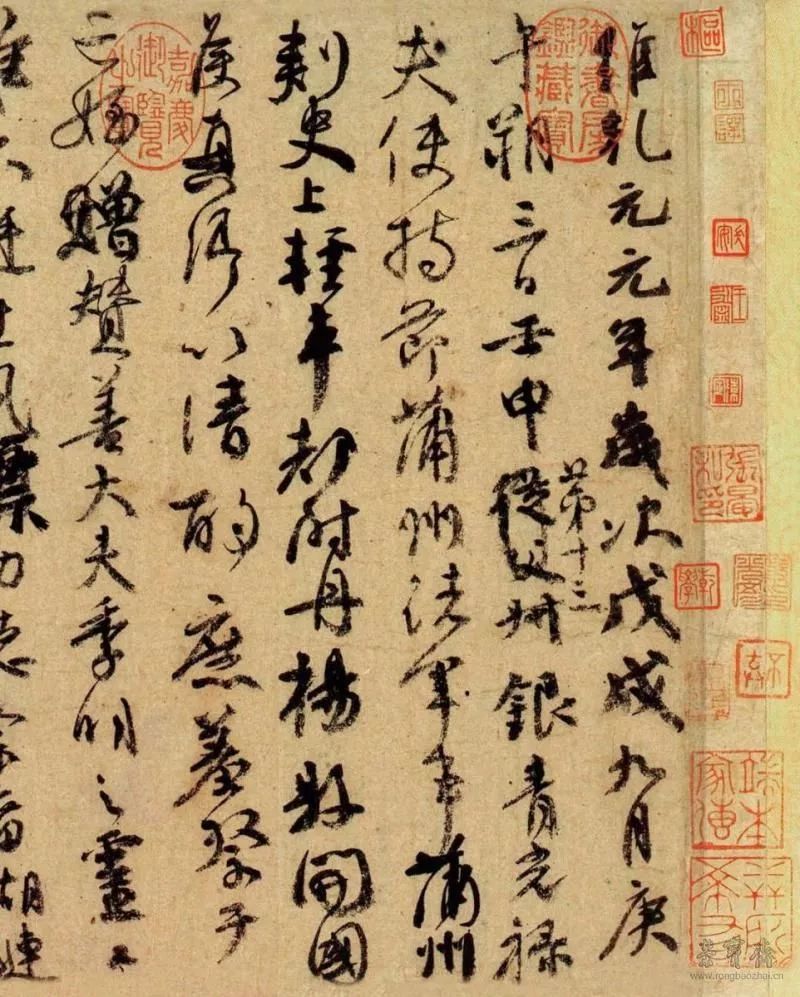 維乾元元年歲次戊戌九月庚
午朔三日壬申從父叔銀青光祿
第十三
夫使持節蒲州諸軍事蒲州
刺史上輕車都尉丹楊縣開國
侯真卿以清酌庶羞祭于
亡姪贈贊善大夫季明之靈曰
惟爾挺生夙標幼德宗廟瑚璉
御書房鑑藏寶
嘉慶御覽之寶
樞
荣宝斋
www.rongbaozhai.cn